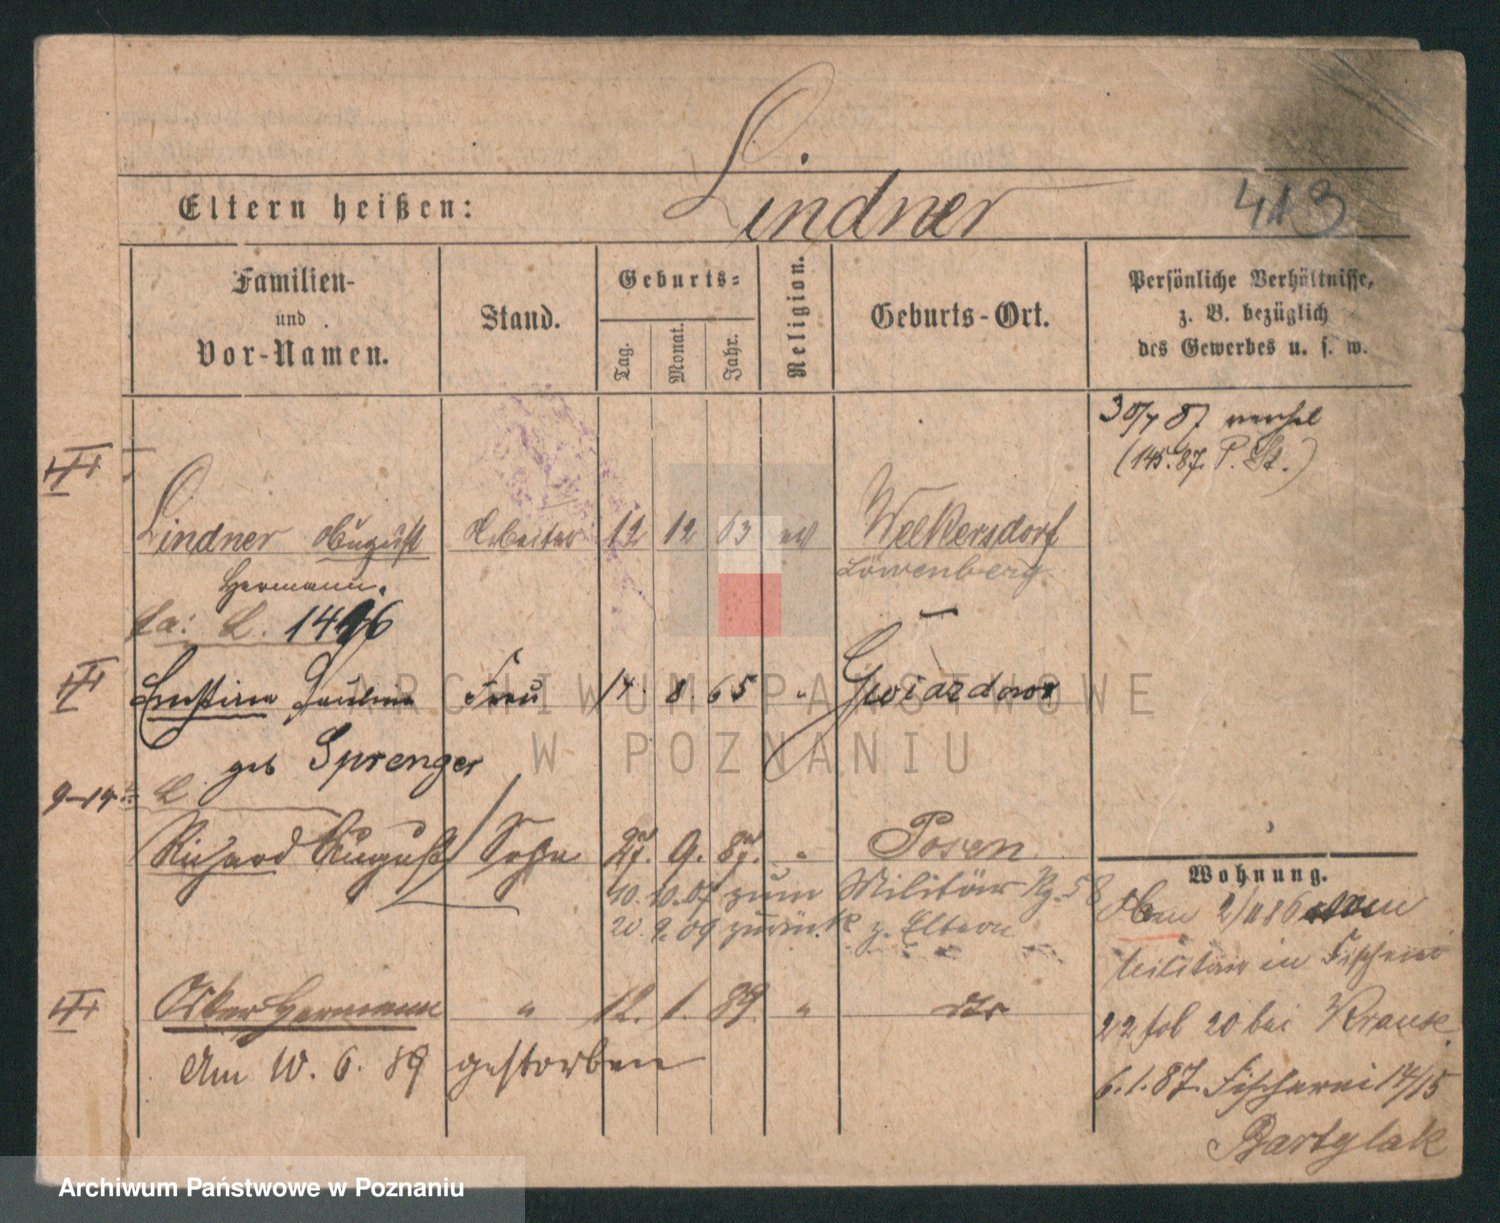 Lindner
Eltern heißen:
413
Familien-
und
Vor-Namen.
Stand.
Geburts-
Tag.
Monat.
Jahr.
Religion.
Geburts-Ort.
Persönliche Verhältnisse,
z. B. bezüglich
des Gewerbes u. s. w.
30/7 87
(145.87. P. )
Lindner August Arbeiter 12 12 63 ev Welkersdorf
Hermann. Löwenberg
L. 1496
Ernstine Pauline Frau 14. 8. 65 " Gwiazdowo
geb Sprenger
9-14
Richard August Sohn 27. 9. 87. " Posen
10.10.07 zum Militär Rg. 58
20.9.09 zurück z. Eltern
Wohnung.
2/11 86 vom
Militair in
Oskar Hermann " 12. 1. 89 " dto
22 20 bei Krause
Am 10. 6. 89 gestorben
6.1.87. Fischerei 14/15
Bartylak
ARCHIWUM PAŃSTWOWE
W POZNANIU
Archiwum Państwowe w Poznaniu